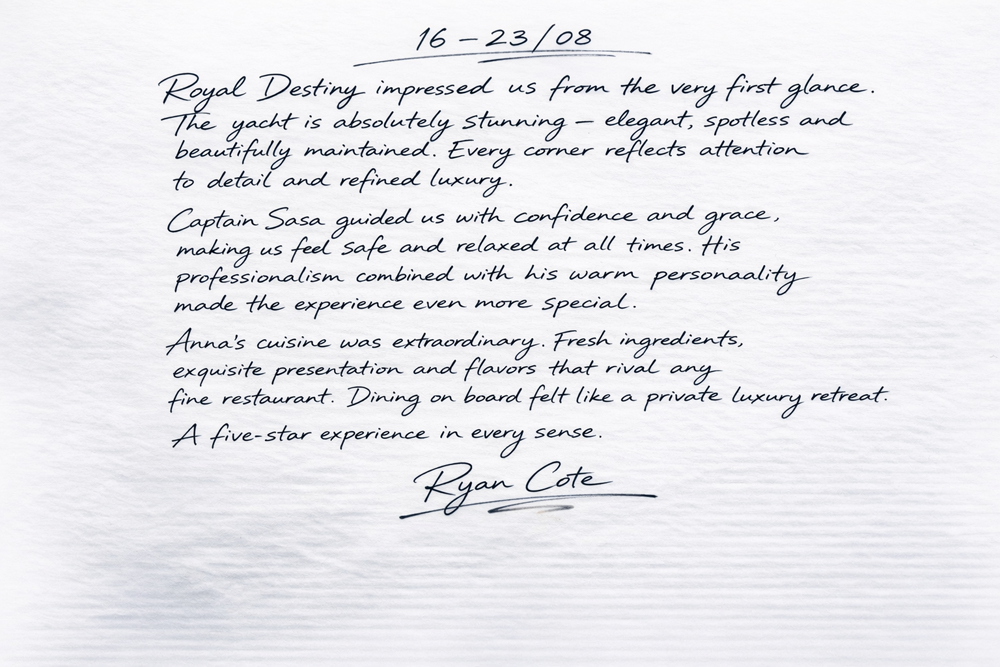 16 – 23/08
Royal Destiny impressed us from the very first glance.
The yacht is absolutely stunning – elegant, spotless and
beautifully maintained. Every corner reflects attention
to detail and refined luxury.
Captain Sasa guided us with confidence and grace,
making us feel safe and relaxed at all times. His
professionalism combined with his warm personaality
made the experience even more special.
Anna's cuisine was extraordinary. Fresh ingredients,
exquisite presentation and flavors that rival any
fine restaurant. Dining on board felt like a private luxury retreat.
A five-star experience in every sense.
Ryan Cote